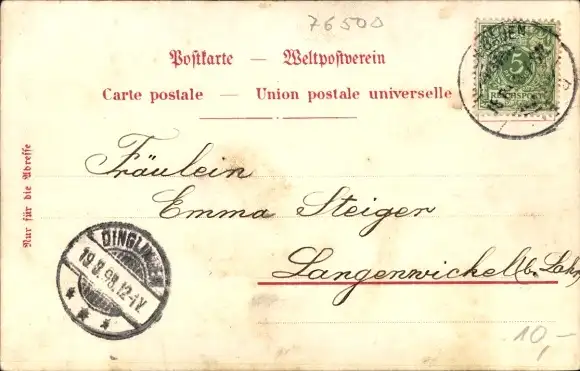 76500
Postkarte — Weltpostverein
Carte postale — Union postale universelle
5
REICHSPOST
Nur für die Adresse
Fräulein
Emma Steiger
Langenwinkel (b. Lahr
DINGLINGEN
19.8.98.12-1V.
10,-